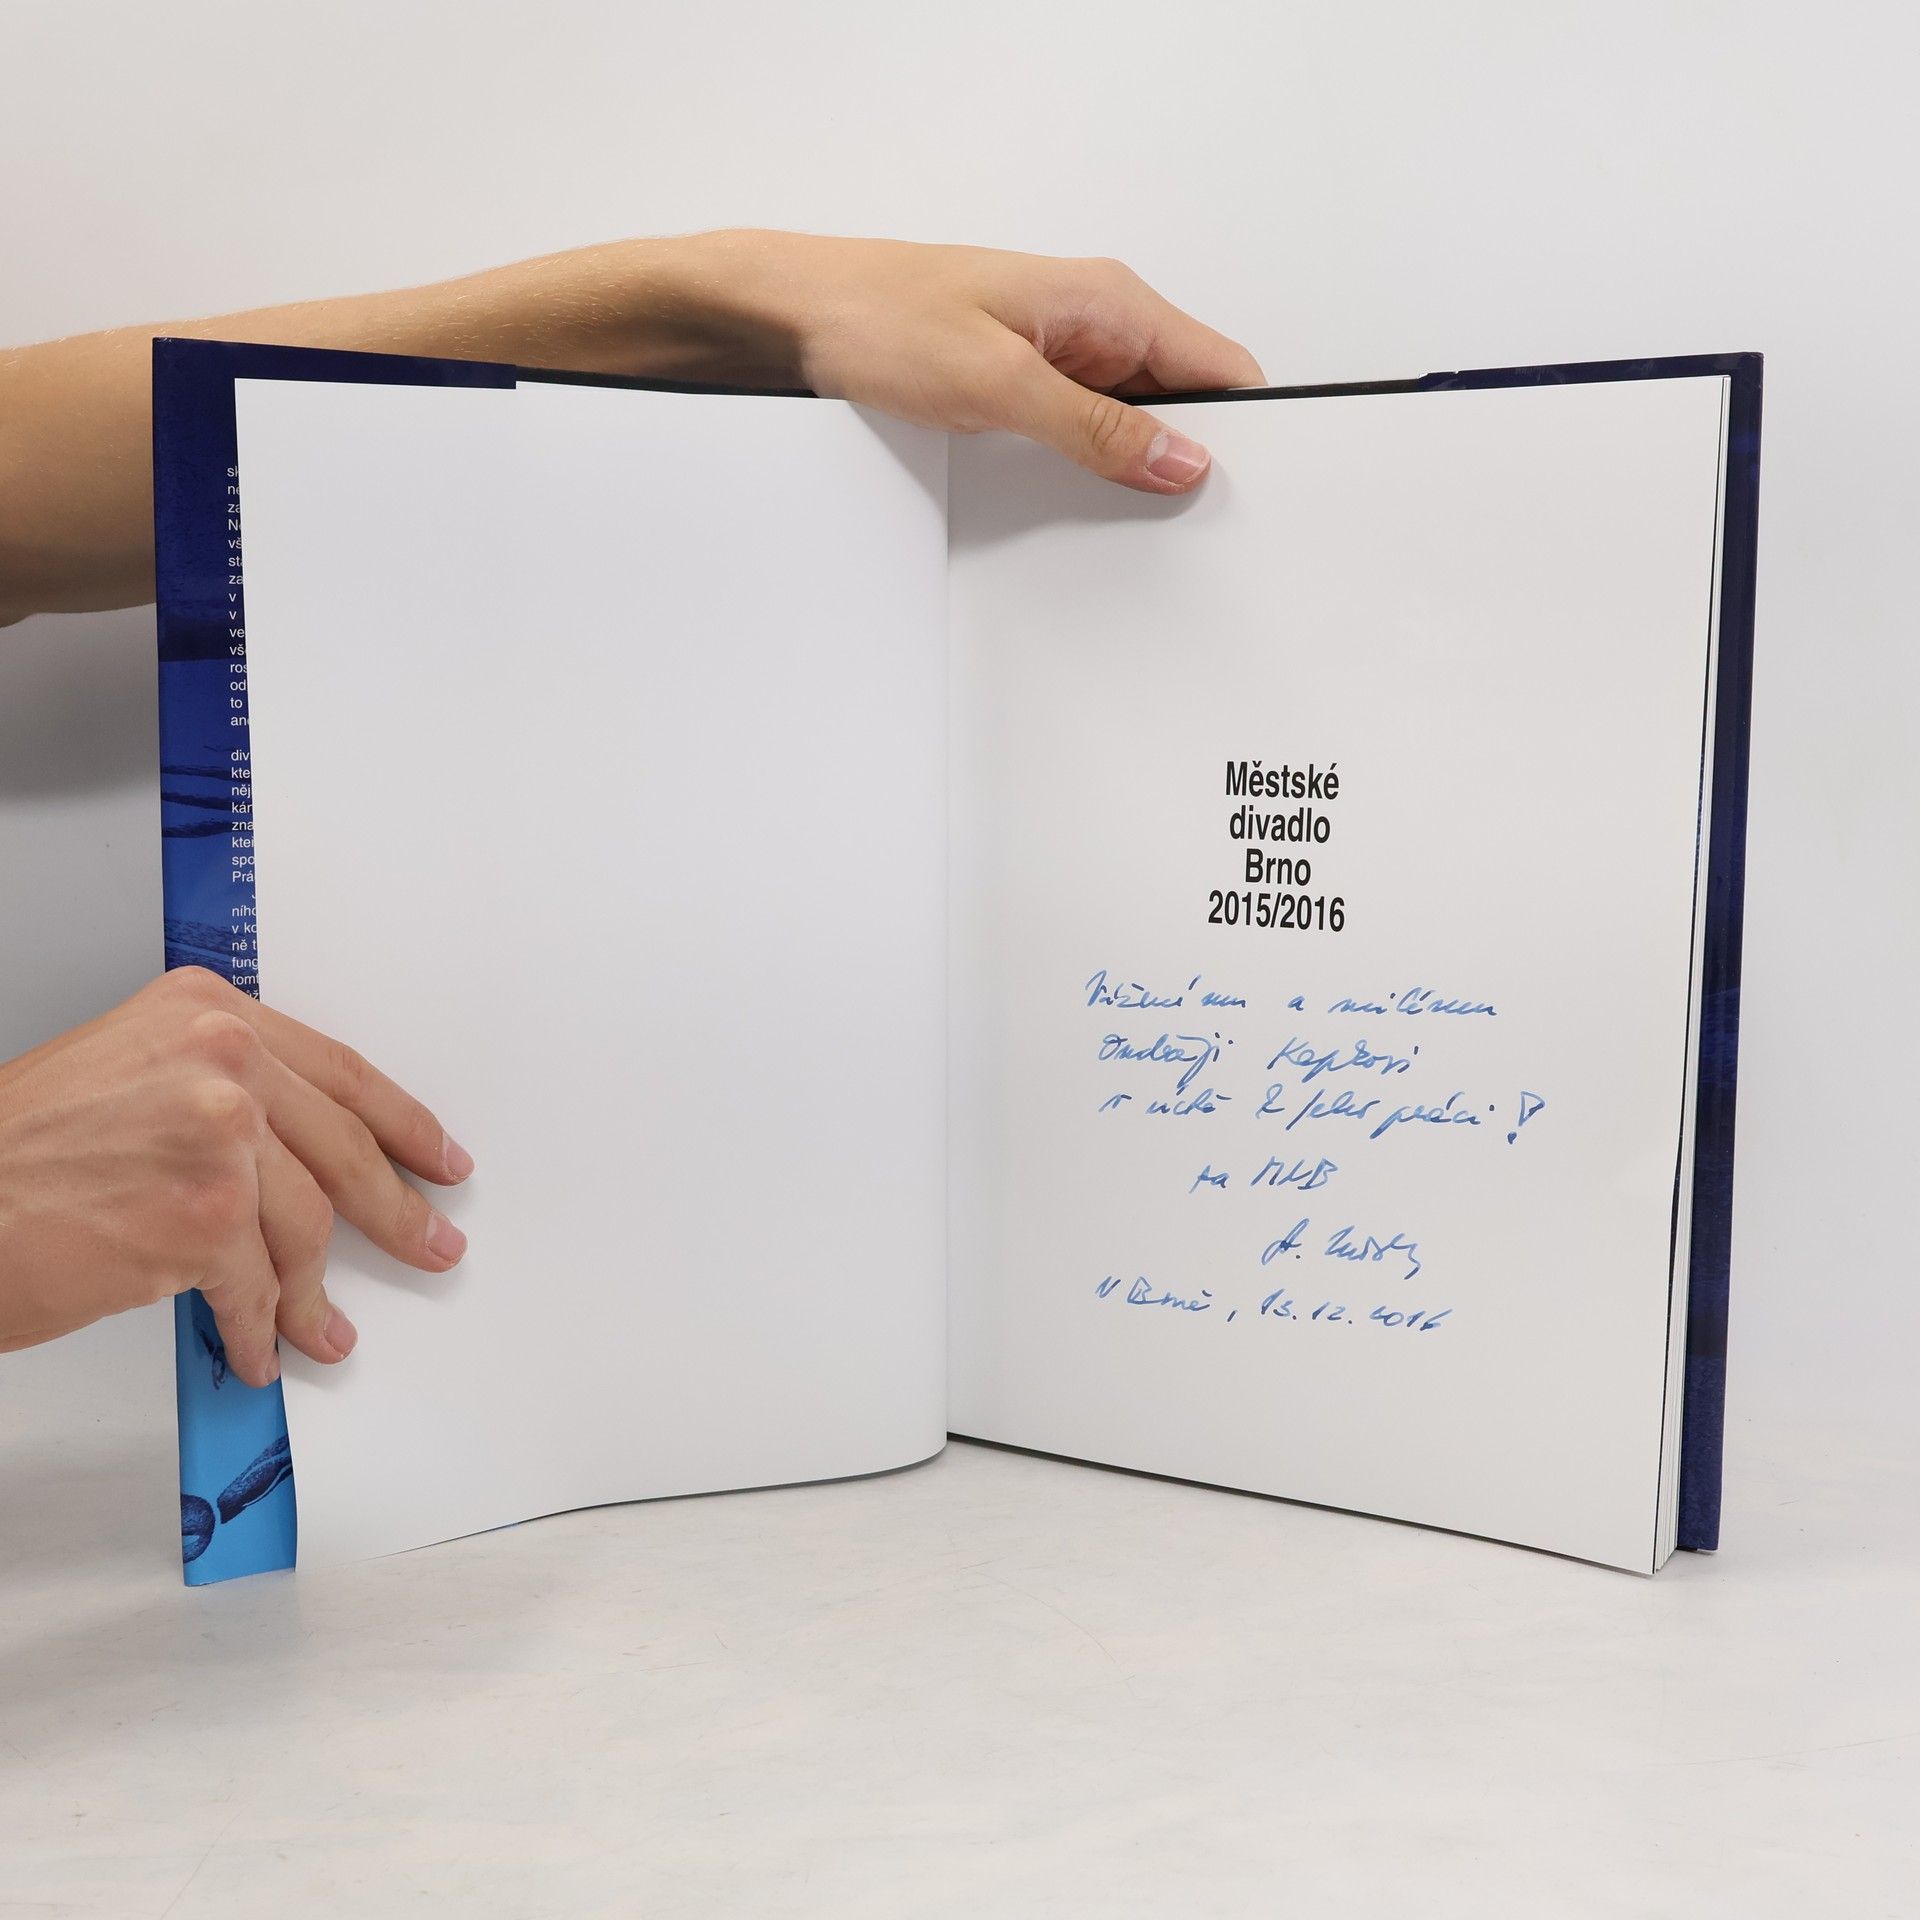 sk
ne
za
Ne
vš
sta
za
v
v
ve
vše
ros
od
to
ane
div
kte
něj
kár
zna
kteř
spo
Prá
J
ního
v ko
ně t
fung
tomt
ůž
Městské
divadlo
Brno
2015/2016
Váženému a milému
Ondřeji Kepkovi
v úctě k jeho práci!
za MDB
V Brně, 13.12.2016